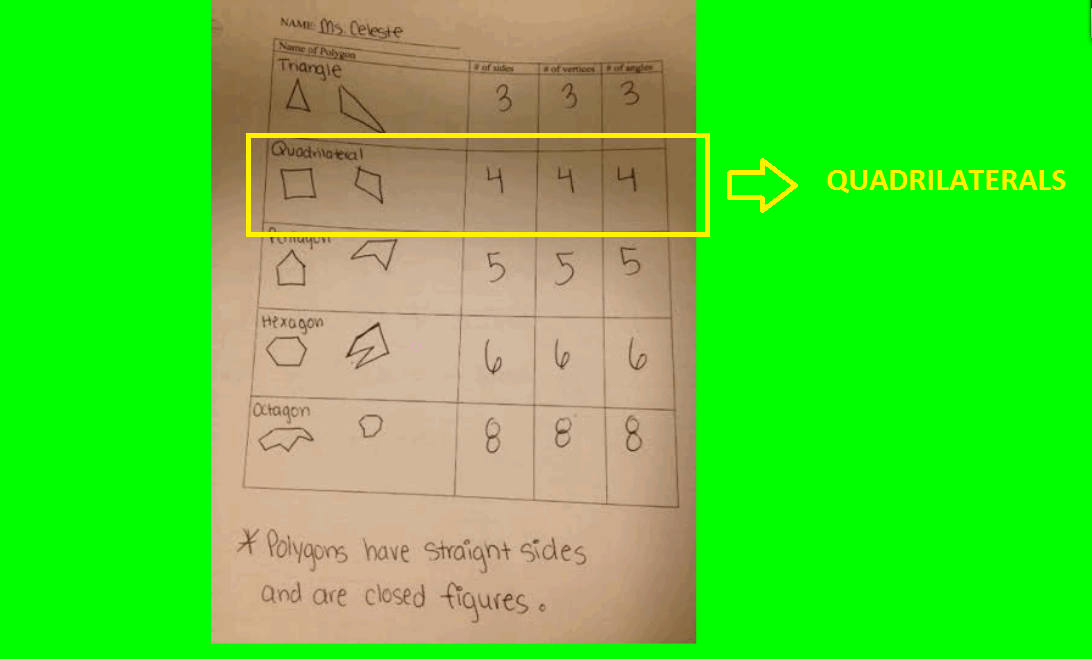 NAME: Ms. Celeste
Name of Polygon # of sides # of vertices # of angles
Triangle 3 3 3
Quadrilateral 4 4 4
QUADRILATERALS
Pentagon 5 5 5
Hexagon 6 6 6
Octagon 8 8 8
* Polygons have straight sides
and are closed figures.